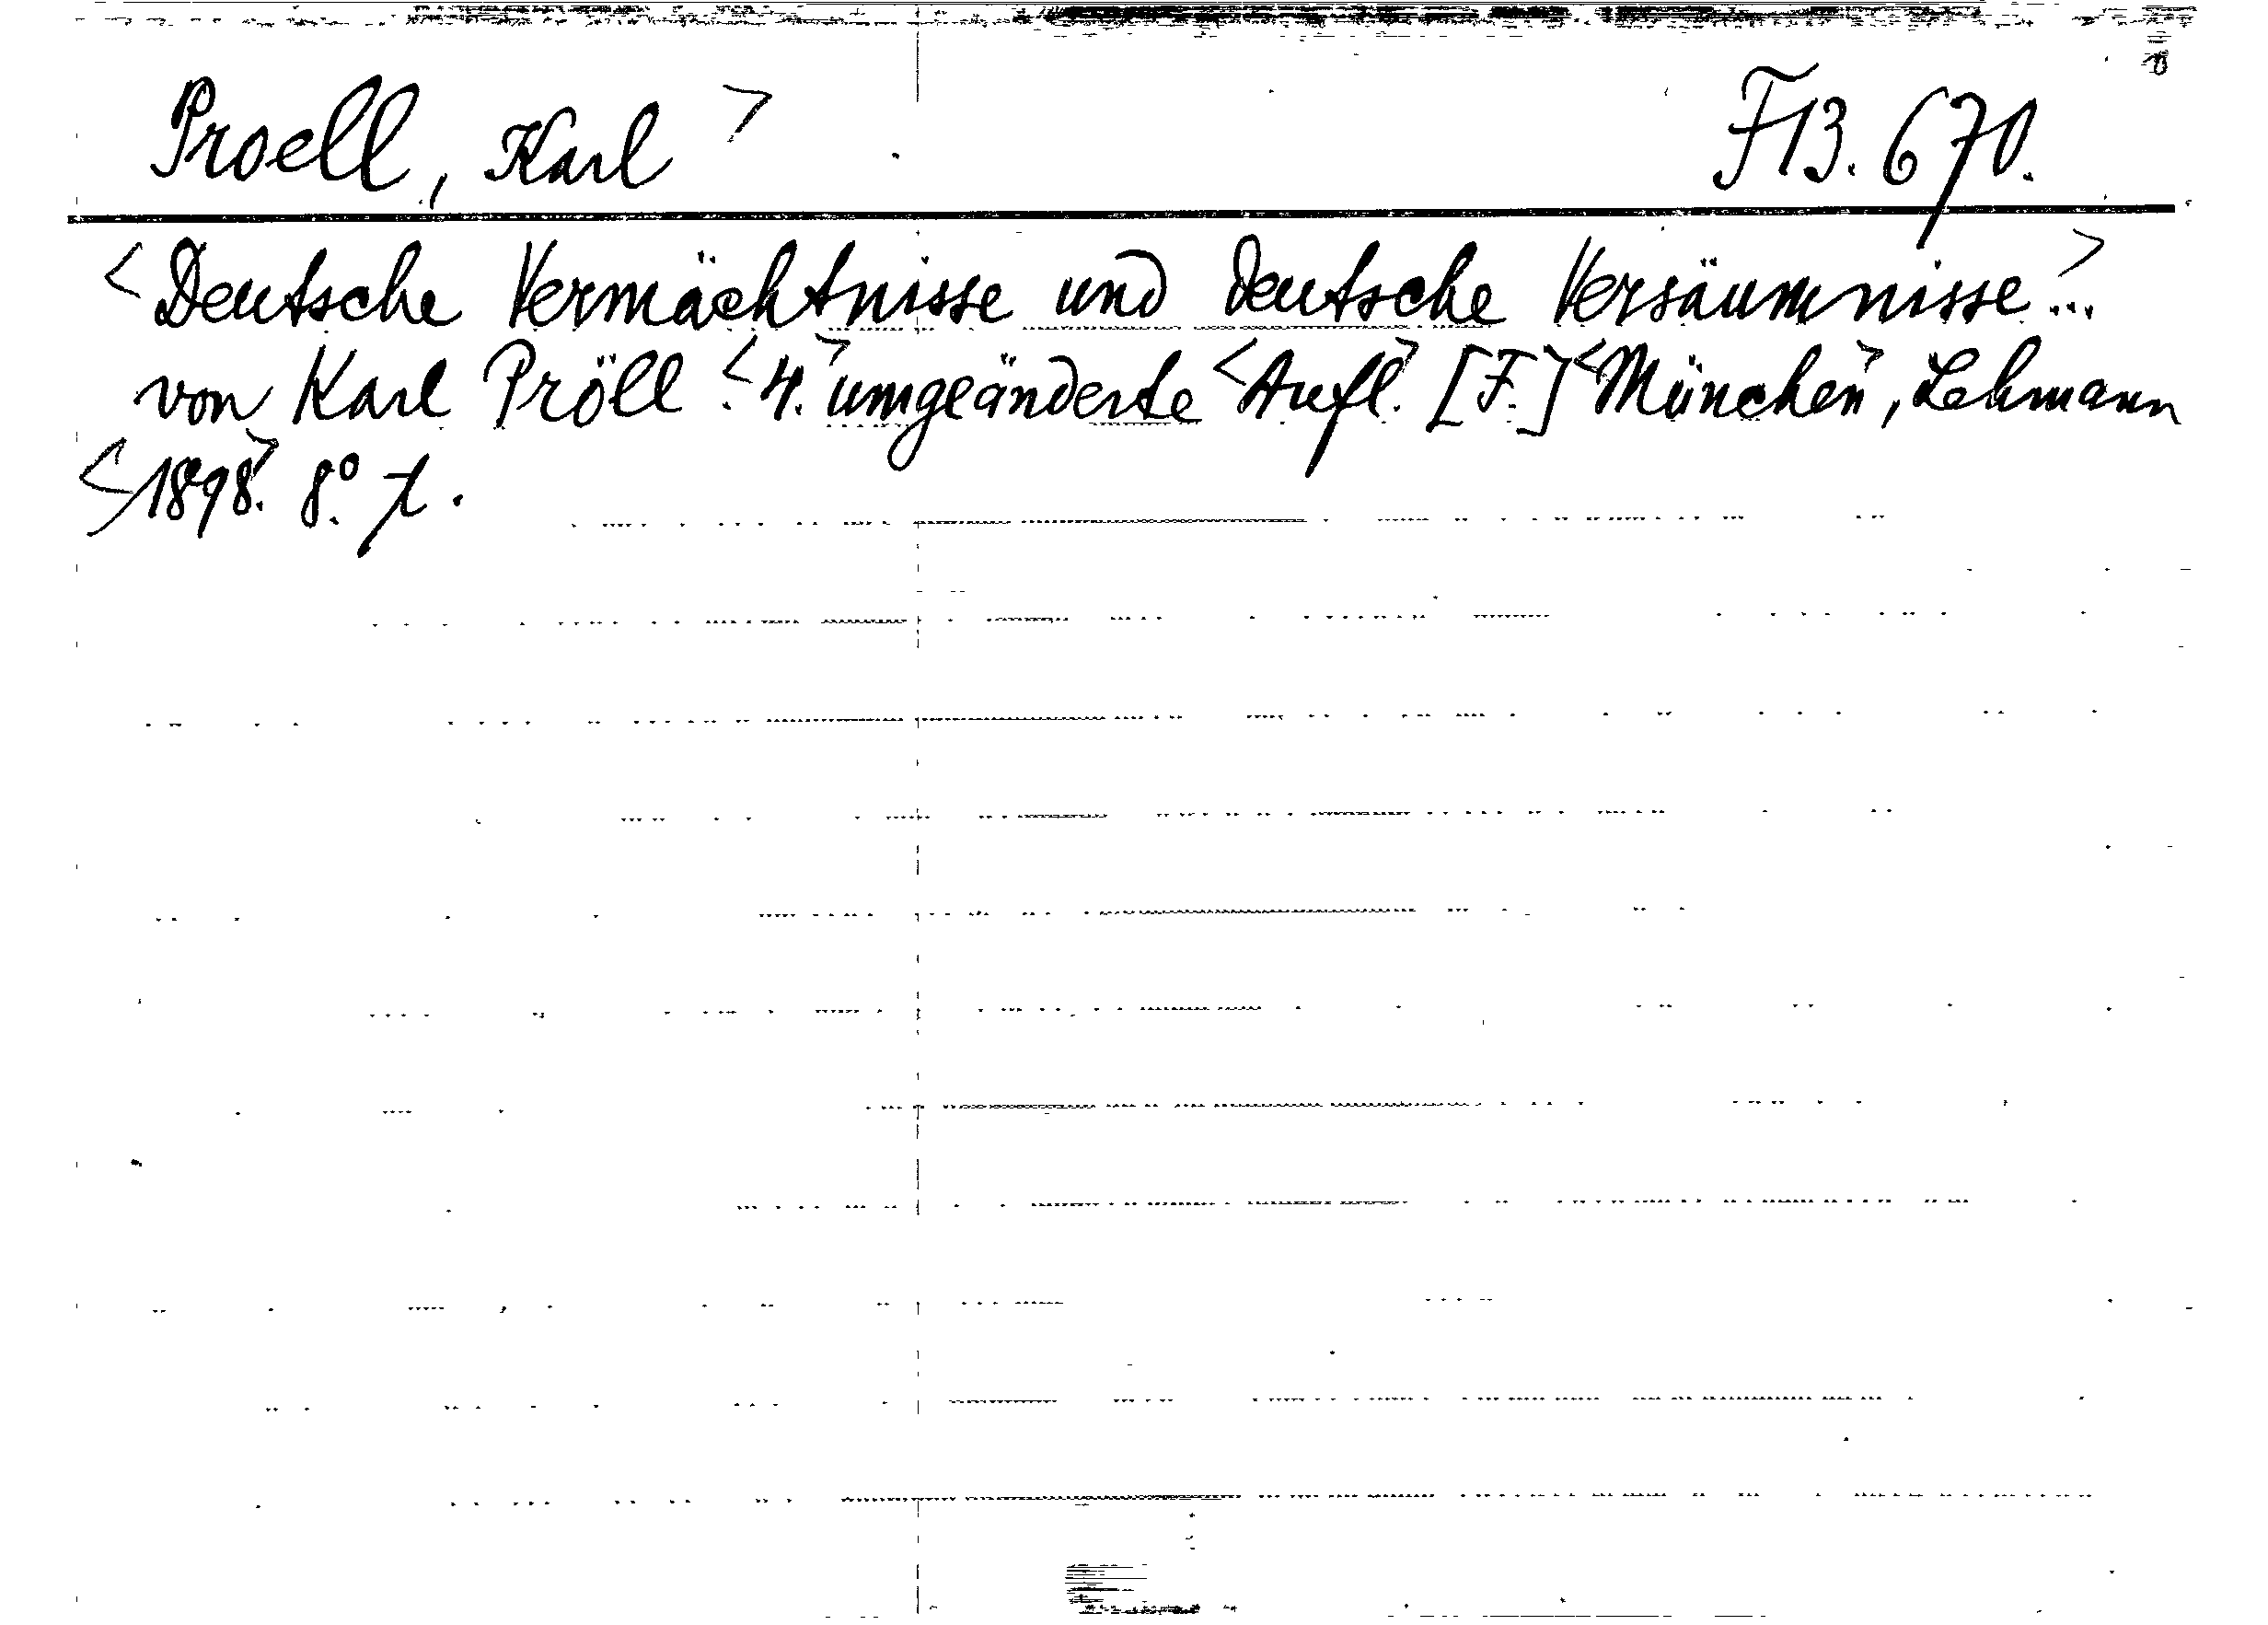 Proell, Karl > F13.670.
<Deutsche Vermächtnisse und deutsche Versäumnisse...>
von Karl Pröll <4.> umgeänderte <Aufl.> [F.] <München>, Lehmann
<1898.> 8º.